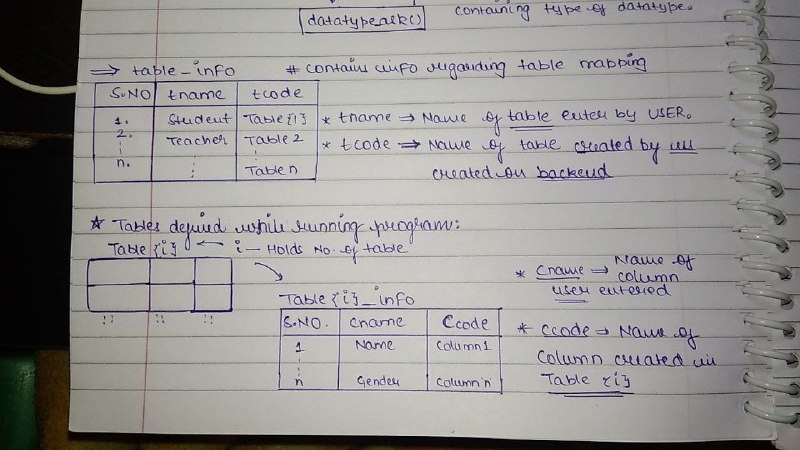 datatypeask()
containing type of datatype.
⇒ table_info # contains info regarding table mapping
S.NO tname tcode
1. Student Table{1}
2. Teacher Table 2
n. Table n
* tname → Name of table enter by USER.
* tcode ⇒ Name of table created by
created on backend
* Tables defined while running program:
Table {i} ← i — Holds No. of table
* Cname → Name of
column
user entered
Table {i}_info
S.NO. Cname Ccode
1 Name Column1
n Gender Column'n
* Ccode → Name of
Column created in
Table {i}